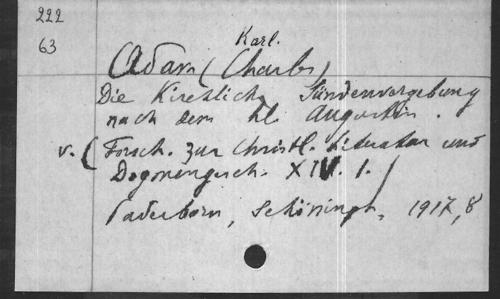 222
63
Karl.
Adam (Charles)
Die Kirchliche Sündenvergebung
nach dem hl. Augustin.
v. (Forsch. zur Christl. Literatur und
Dogmengesch. XIV. 1.)
Paderborn, Schöningh, 1917, 8